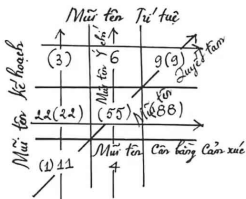 Mũi tên Trí tuệ
Mũi tên Kế hoạch
(3)
Mũi tên Ý chí
6
9(9)
Quyết tâm
Mũi tên
22(22)
(55)
(88)
(1)11
Mũi tên Cân bằng Cảm xúc
4